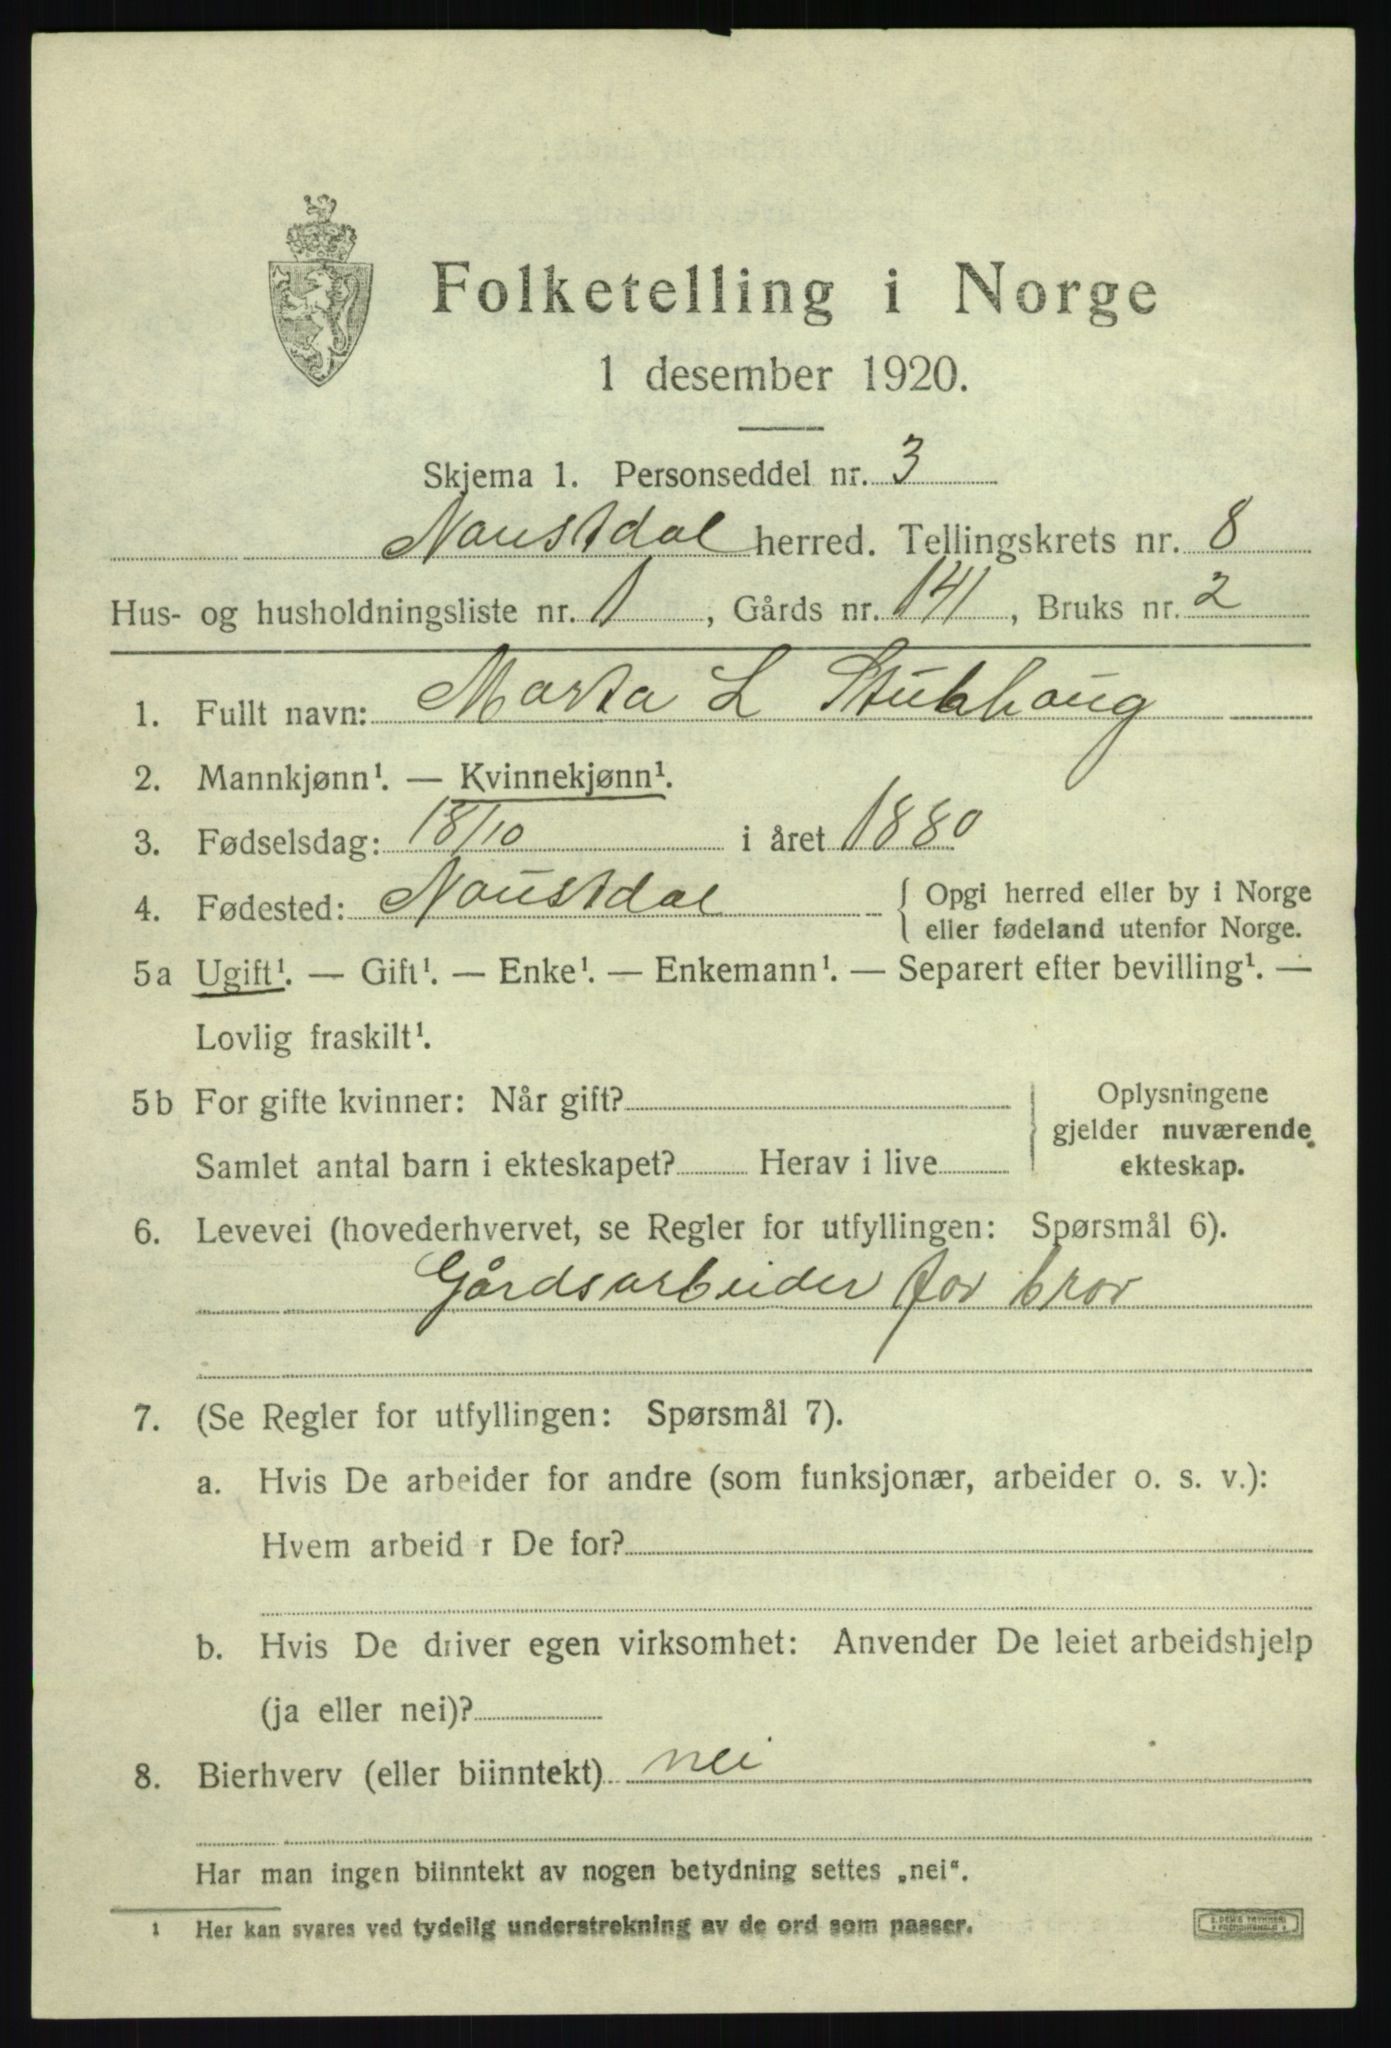 Folketelling i Norge
1 desember 1920.
Skjema 1. Personseddel nr. 3
Naustdal herred. Tellingskrets nr. 8
Hus- og husholdningsliste nr. 1, Gårds nr. 141, Bruks nr. 2
1. Fullt navn: Marta L Stubhaug
2. Mannkjønn¹. — Kvinnekjønn¹.
3. Fødselsdag: 18/10 i året 1880
4. Fødested: Naustdal { Opgi herred eller by i Norge
eller fødeland utenfor Norge.
5a Ugift¹. — Gift¹. — Enke¹. — Enkemann¹. — Separert efter bevilling¹. —
Lovlig fraskilt¹.
5b For gifte kvinner: Når gift? Oplysningene
gjelder nuværende
Samlet antal barn i ekteskapet? Herav i live ekteskap.
6. Levevei (hovederhvervet, se Regler for utfyllingen: Spørsmål 6).
Gårdsarbeider for bror
7. (Se Regler for utfyllingen: Spørsmål 7).
a. Hvis De arbeider for andre (som funksjonær, arbeider o. s. v.):
Hvem arbeid r De for?
b. Hvis De driver egen virksomhet: Anvender De leiet arbeidshjelp
(ja eller nei)?
8. Bierhverv (eller biinntekt) nei
Har man ingen biinntekt av nogen betydning settes „nei“.
¹ Her kan svares ved tydelig understrekning av de ord som passer.